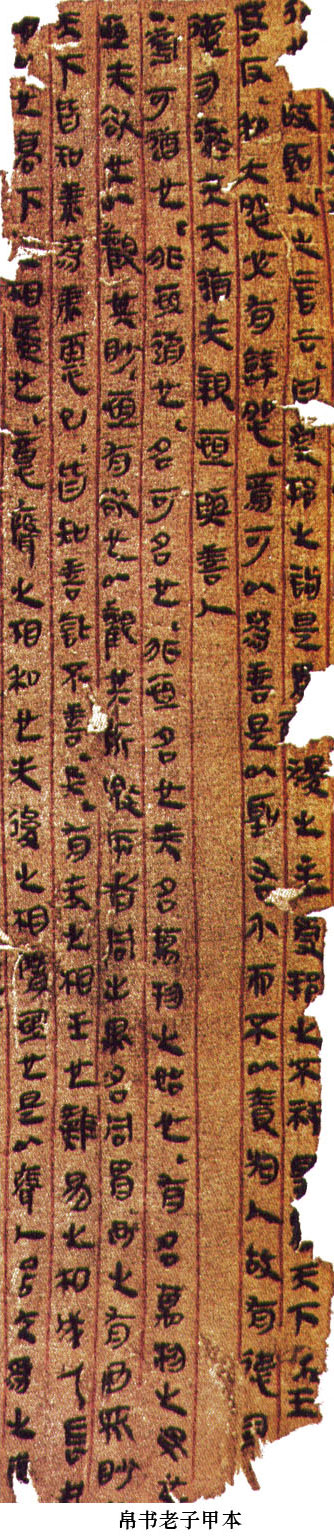 行 故聖人之言云曰受邦之詢是胃 稷之主受邦之不祥是胃 天下之王
言若反和大怨必有餘怨焉可以為善是以聖右介而不以責於人故有德司
德司徹夫天道无親恒與善人
道可道也非恒道也名可名也非恒名也无名萬物之始也有名萬物之母也
恒无欲也以觀其眇恒有欲也以觀其所噭兩者同出異名同胃玄之有玄眾眇
天下皆知美為美惡已皆知善訾不善矣有无之相生也難易之相成也長
也高下之相盈也意聲之相和也先後之相隋恒也是以聲人居无為之
帛书老子甲本